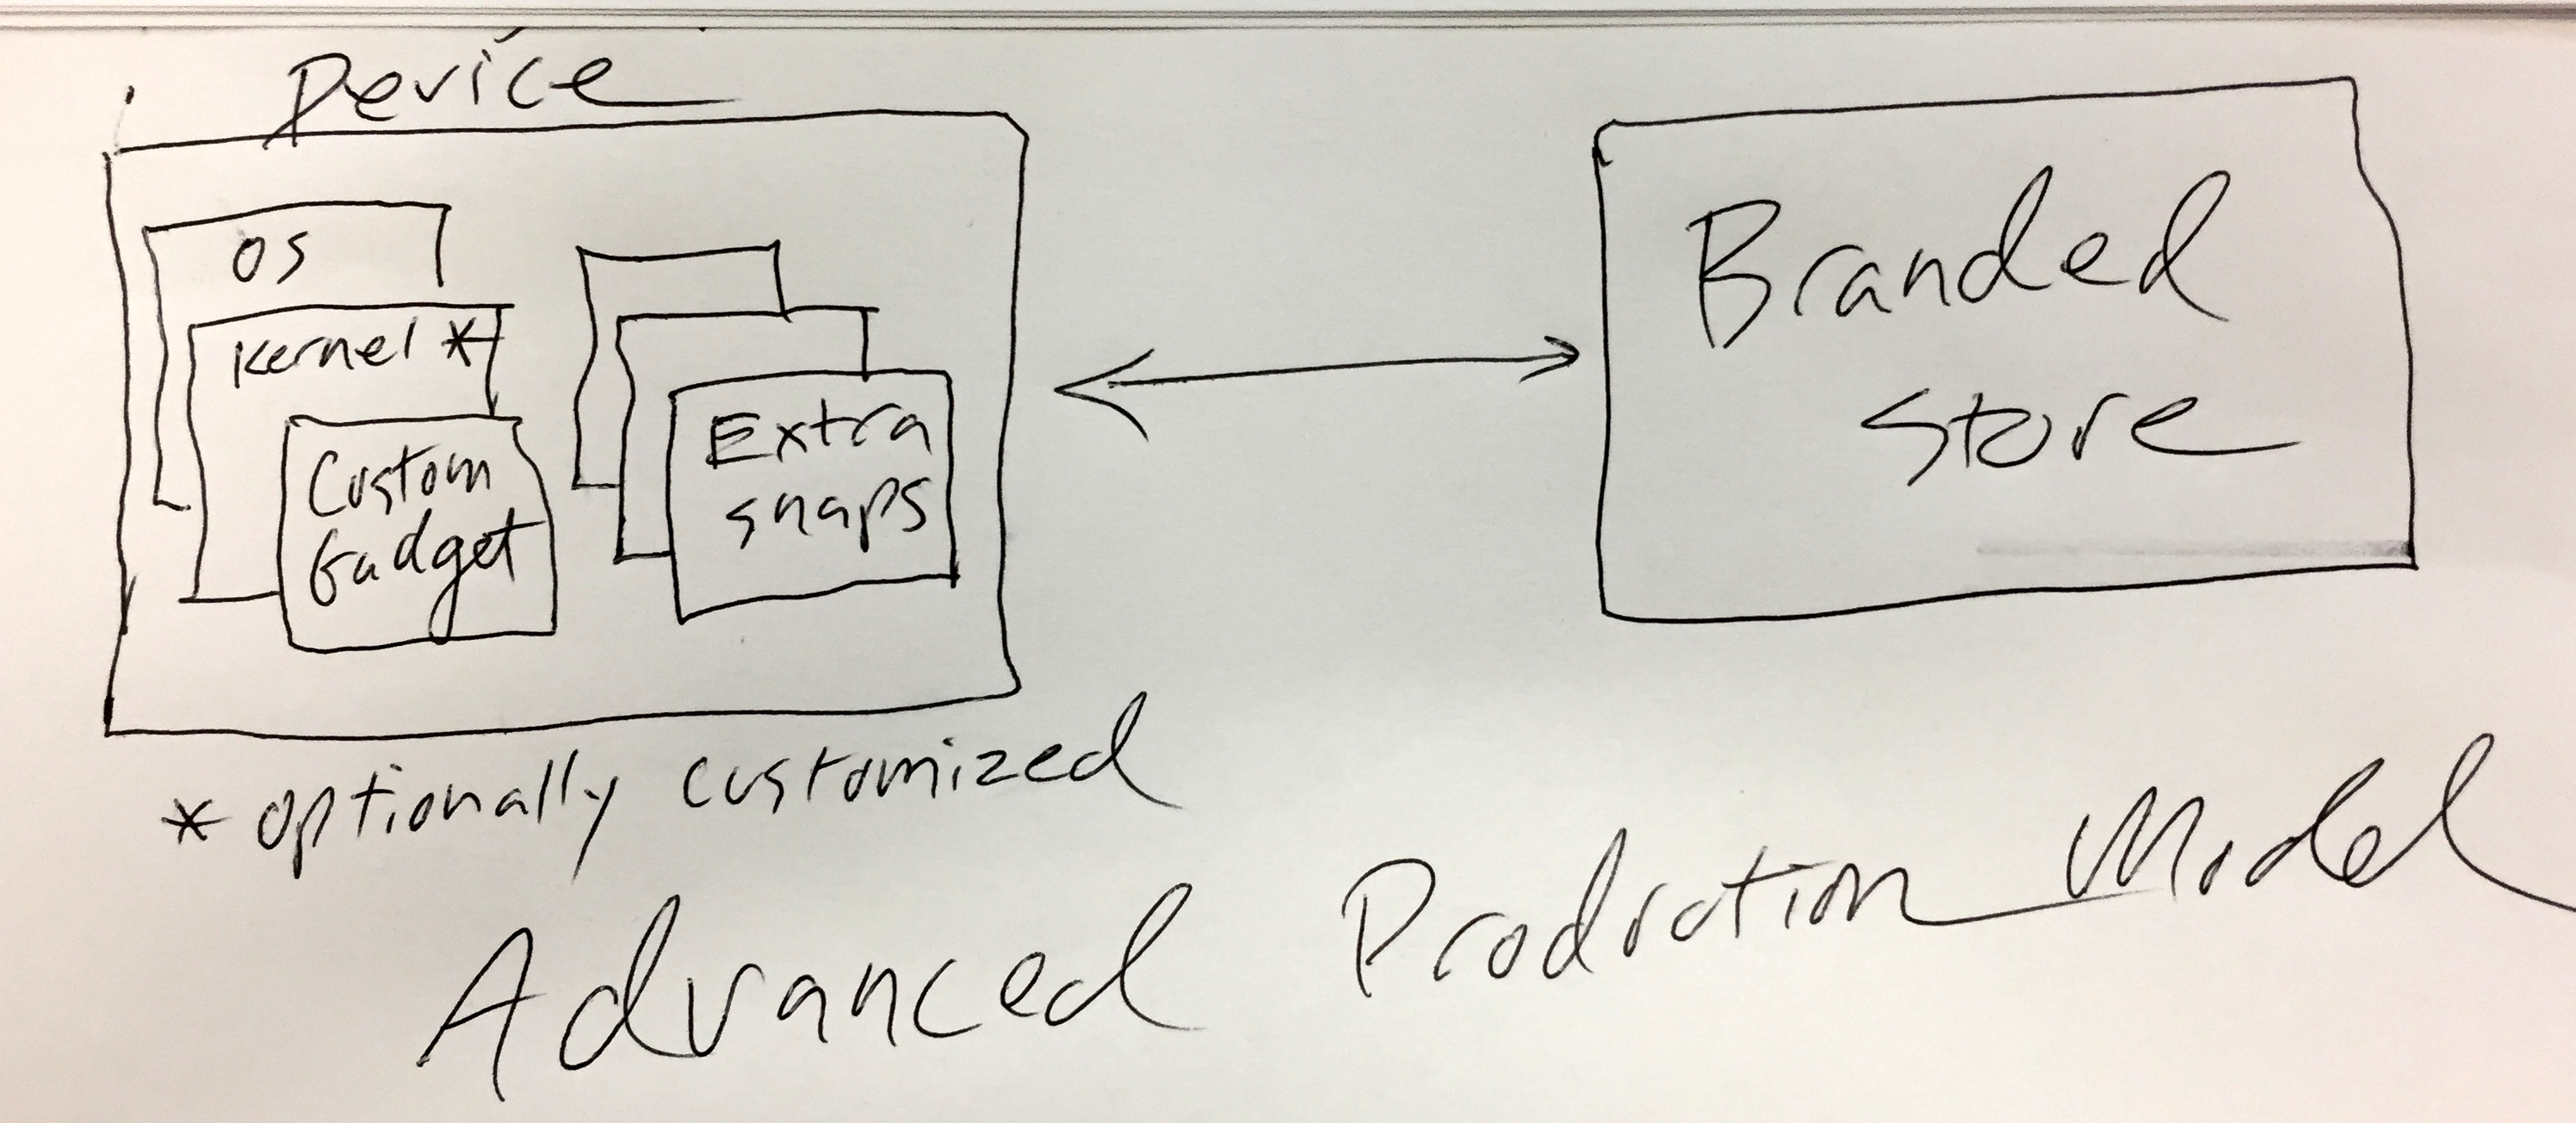 Device
OS
Kernel *
Custom
Gadget
Extra
snaps
Branded
Store
* optionally customized
Advanced Production Model